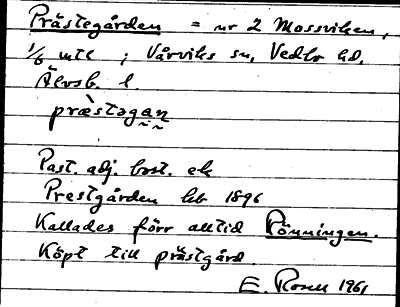 Prästegården = nr 2 Mossviken,
1/6 mtl ; Vårviks sn, Vedbo hd.
Älvsb. l.
præ̀stagan
Past. adj. bost. ek
Prestgården hb 1896
Kallades förr alltid Rönningen.
Köpt till prästgård.
E. Rosell 1961